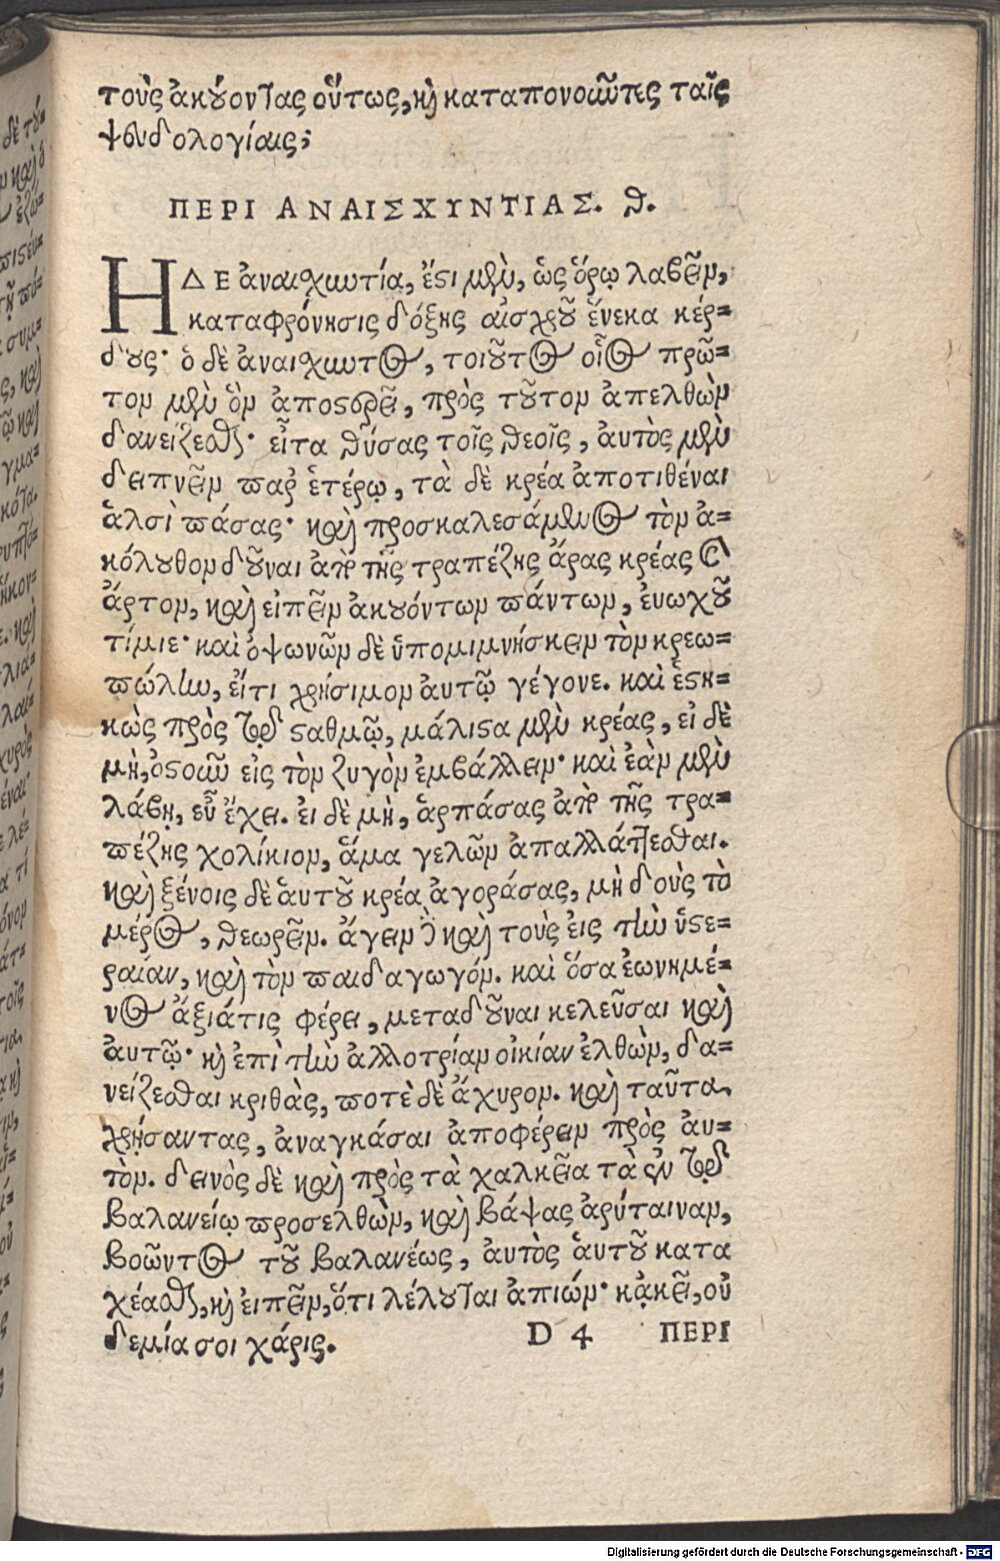 τοὺς ἀκούοντας οὕτως, καὶ καταπονοῦντες ταῖς
ψευδολογίαις;
ΠΕΡΙ ΑΝΑΙΣΧΥΝΤΙΑΣ. θ.
Η ΔΕ ἀναισχυντία, ἔστι μὲν, ὡς ὅρῳ λαβεῖν,
καταφρόνησις δόξης αἰσχροῦ ἕνεκα κέρ=
δους· ὁ δὲ ἀναισχυντος, τοιοῦτος οἷος πρῶ=
τον μὲν ὃν ἀποστερεῖ, πρὸς τοῦτον ἀπελθὼν
δανείζεσθαι· εἶτα θύσας τοῖς θεοῖς, ἀυτὸς μὲν
δειπνεῖν παρ ἑτέρῳ, τὰ δὲ κρέα ἀποτιθέναι
ἁλσὶ πάσας· καὶ προσκαλεσάμενος τὸν ἀ=
κόλουθον δοῦναι ἀπὸ τῆς τραπέζης ἄρας κρέας καὶ
ἄρτον, καὶ εἰπεῖν ἀκουόντων πάντων, ἐυωχοῦ
τίμιε· καὶ ὀψωνῶν δὲ ὑπομιμνήσκειν τὸν κρεω=
πώλην, εἴτι χρήσιμον αὐτῷ γέγονε. καὶ ἑστη=
κὼς πρὸς τῷ σταθμῷ, μάλιστα μὲν κρέας, εἰ δὲ
μὴ, ὀστοῦν εἰς τὸν ζυγὸν ἐμβάλλειν· καὶ ἐὰν μὲν
λάβῃ, εὖ ἔχει. ἐι δὲ μὴ, ἁρπάσας ἀπὸ τῆς τρα=
πέζης χολίκιον, ἅμα γελῶν ἀπαλλάττεσθαι.
καὶ ξένοις δὲ ἁυτοῦ κρέα ἀγοράσας, μὴ δοὺς τὸ
μέρος, θεωρεῖν. ἄγειν δὲ καὶ τοὺς ἐις τὴν ὑστε=
ραίαν, καὶ τὸν παιδαγωγόν. καὶ ὅσα ἐωνημέ=
νος ἄξιάτις φέρει, μεταδοῦναι κελεῦσαι καὶ
ἁυτῷ· καὶ ἐπὶ τὴν ἀλλοτρίαν οἰκίαν ἐλθὼν, δα=
νείζεσθαι κριθὰς, ποτὲ δὲ ἄχυρον. καὶ ταῦτα
χρήσαντας, ἀναγκάσαι ἀποφέρειν πρὸς ἁυ=
τὸν. δεινὸς δὲ καὶ πρὸς τὰ χαλκεῖα τὰ ἐν τῷ
βαλανείῳ προσελθὼν, καὶ βάψας ἀρύταιναν,
βοῶντος τοῦ βαλανέως, ἀυτὸς ἁυτοῦ κατα
χέασθαι, καὶ ἐιπεῖν, ὅτι λέλουται ἀπιών· κἀκεῖ, οὐ
δεμία σοι χάρις.
D 4 ΠΕΡΙ
Digitalisierung gefördert durch die Deutsche Forschungsgemeinschaft - DFG